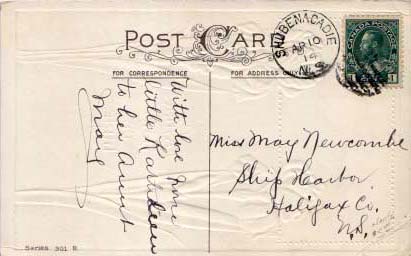 POST CARD
FOR CORRESPONDENCE
FOR ADDRESS ONLY
SHUBENACADIE
AP 10
14
N.S.
CANADA POSTAGE
1 1
With love from
little Kathleen
to her Aunt
May
Miss May Newcombe
Ship Harbor
Halifax Co.
N.S.
Series 301 B